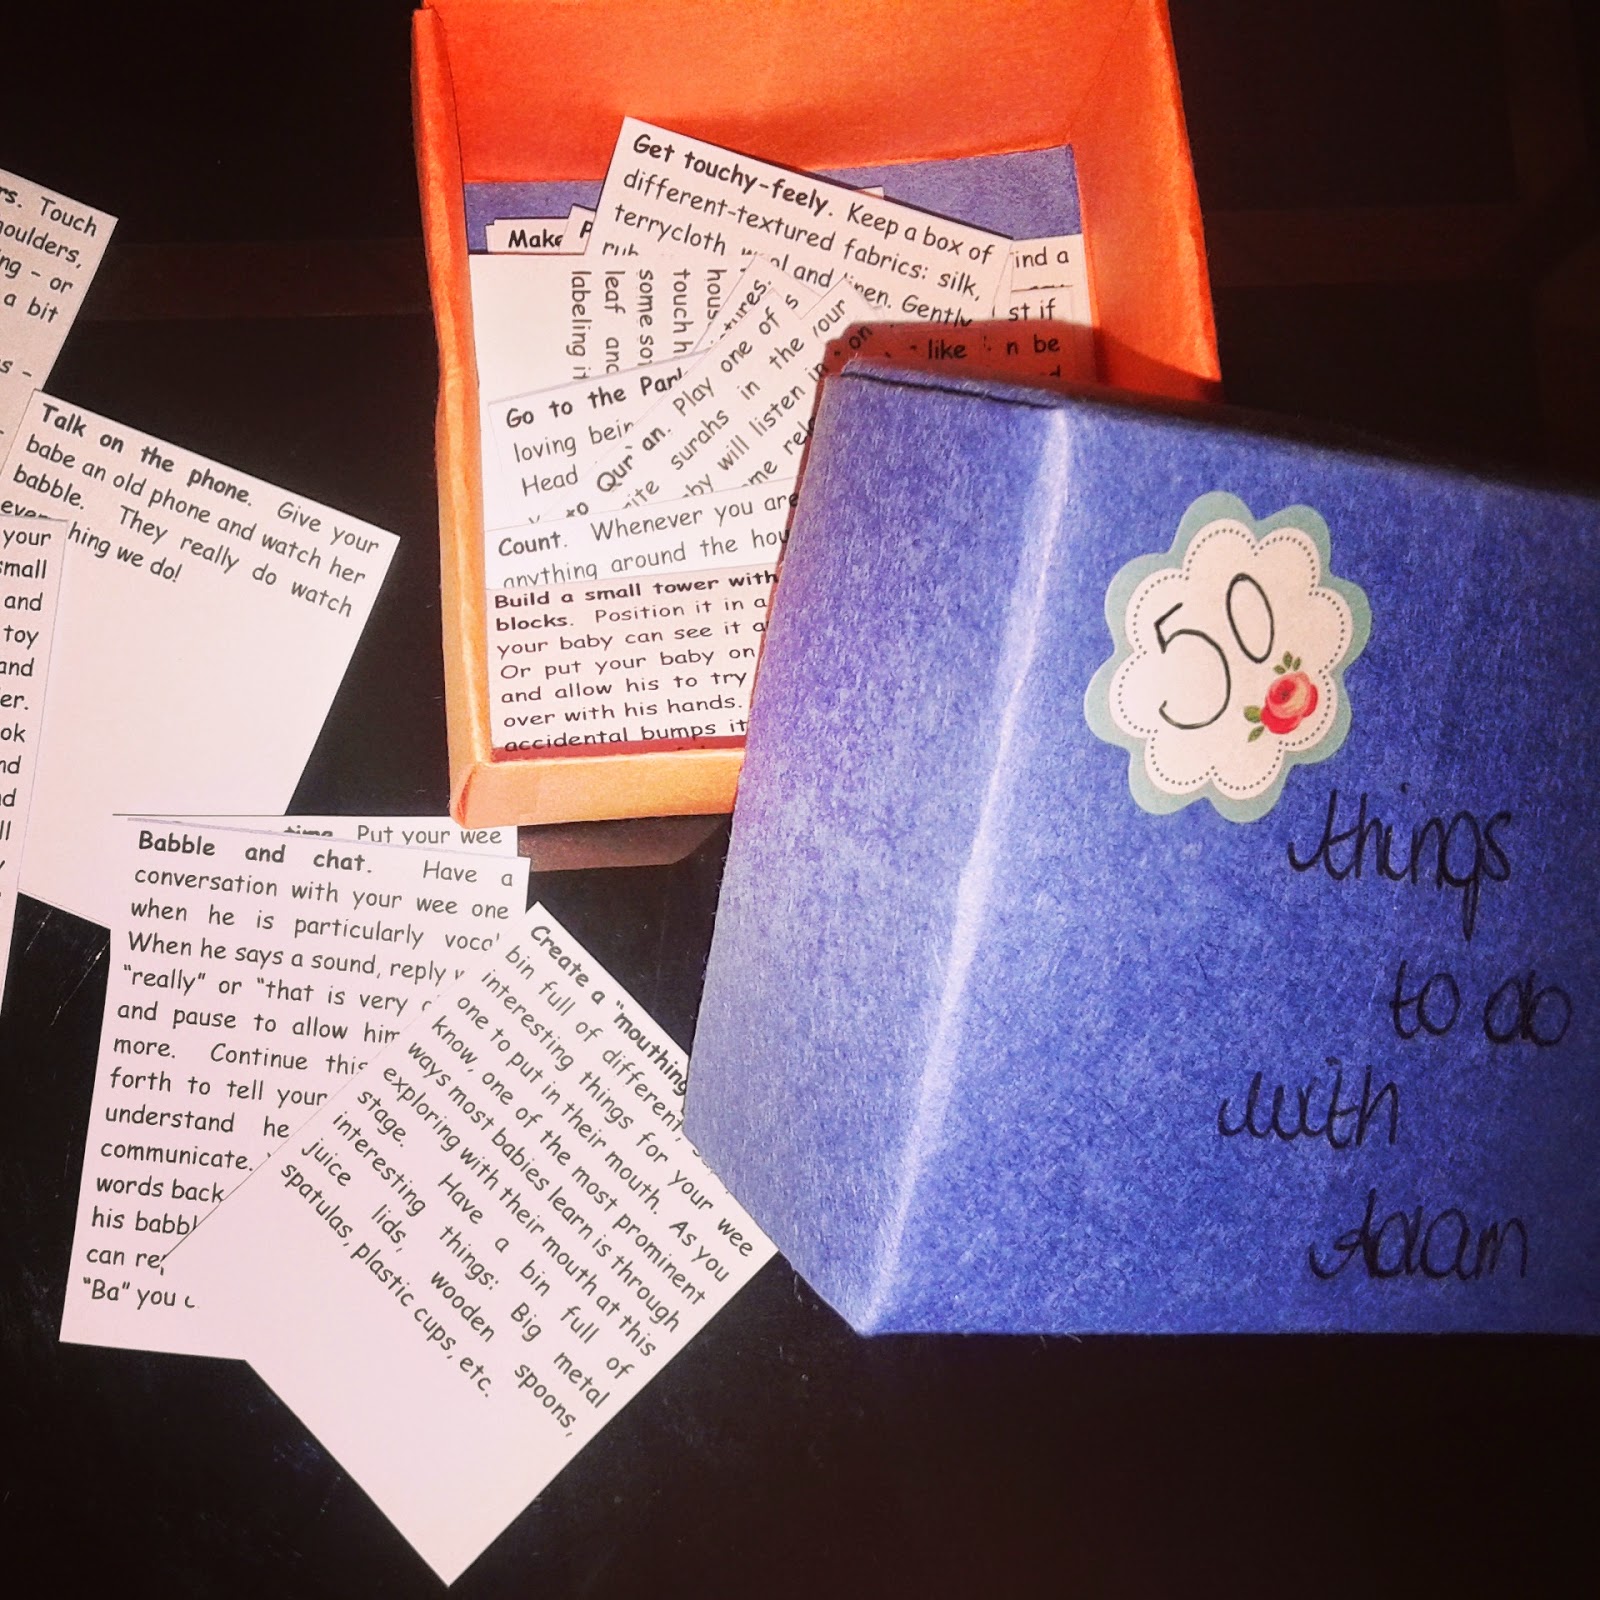 50
things
to do
with
Adam
Get touchy-feely. Keep a box of
different-textured fabrics: silk,
terrycloth and linen. Gently
Make
ind a
st if
n be
like
hous
touch h
some so
leaf and
labeling it
Go to the Park
loving bein
Head
tures.
Qur'an. Play one of
surahs in the your
by will listen in on
Count. Whenever you are
anything around the hou
Build a small tower with
blocks. Position it in a
your baby can see it a
Or put your baby on
and allow his to try
over with his hands.
accidental bumps it
rs. Touch
houlders,
ng - or
a bit
Talk on the phone. Give your
babe an old phone and watch her
babble. They really do watch
everything we do!
your
small
and
toy
and
er.
ok
nd
d
ll
time. Put your wee
Babble and chat. Have a
conversation with your wee one
when he is particularly vocal
When he says a sound, reply
"really" or "that is very
and pause to allow him
more. Continue this
forth to tell your
understand he
communicate.
words back
his babbl
can re
"Ba" you c
Create a "mouthing
bin full of different,
interesting things for your wee
one to put in their mouth. As you
know, one of the most prominent
ways most babies learn is through
exploring with their mouth at this
stage. Have a bin full of
interesting things: Big metal
juice lids, wooden spoons,
spatulas, plastic cups, etc.